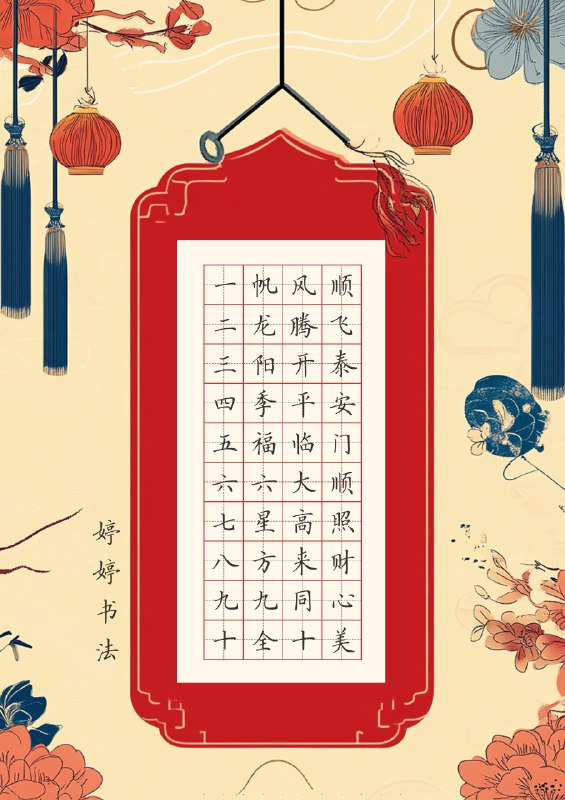 一帆风顺
二龙腾飞
三阳开泰
四季平安
五福临门
六六大顺
七星高照
八方来财
九九同心
十全十美
婷婷书法